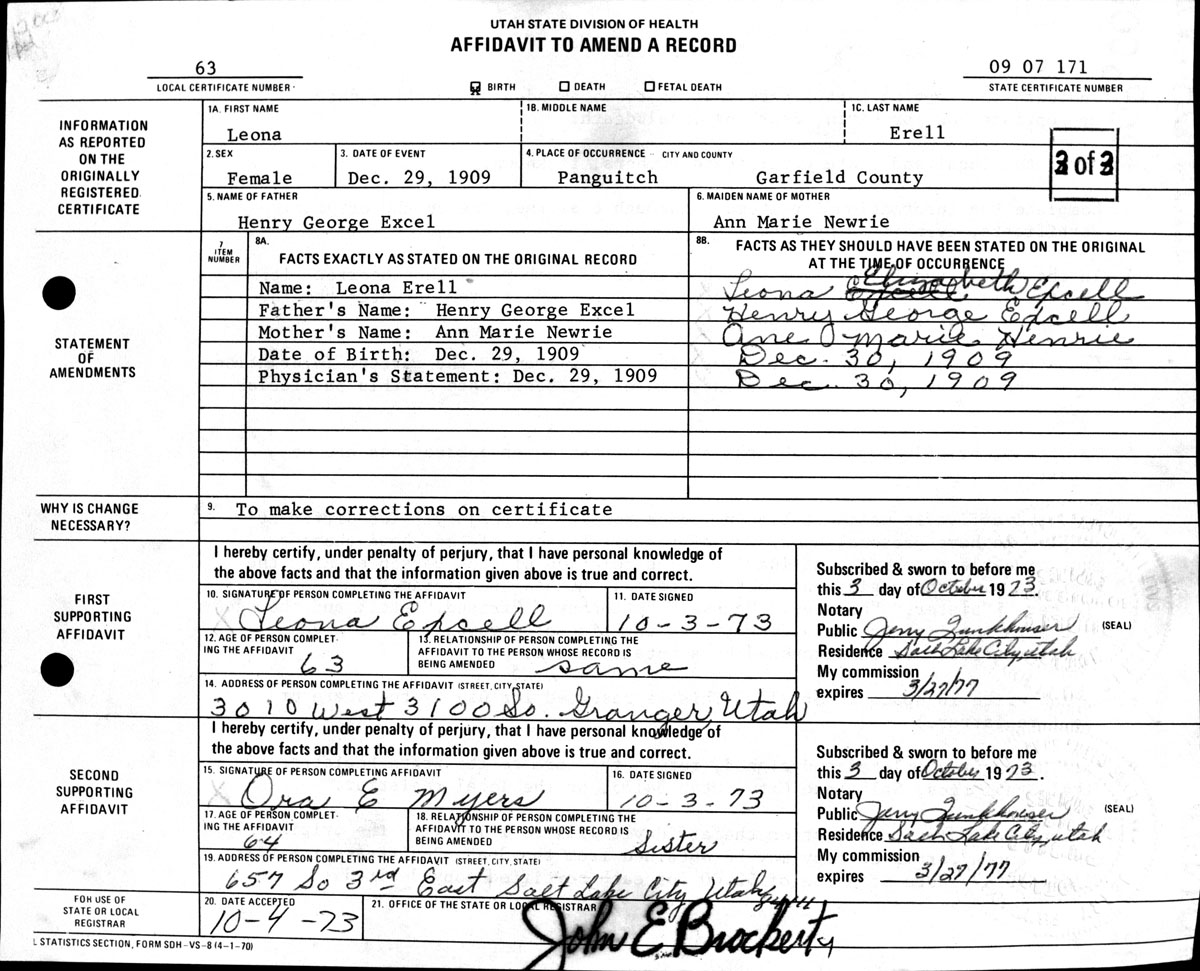 UTAH STATE DIVISION OF HEALTH
AFFIDAVIT TO AMEND A RECORD
63
LOCAL CERTIFICATE NUMBER
BIRTH DEATH FETAL DEATH
09 07 171
STATE CERTIFICATE NUMBER
INFORMATION
AS REPORTED
ON THE
ORIGINALLY
REGISTERED
CERTIFICATE
1A. FIRST NAME 1B. MIDDLE NAME 1C. LAST NAME
Leona Erell
2. SEX 3. DATE OF EVENT 4. PLACE OF OCCURRENCE - CITY AND COUNTY
Female Dec. 29, 1909 Panguitch Garfield County
of
5. NAME OF FATHER 6. MAIDEN NAME OF MOTHER
Henry George Excel Ann Marie Newrie
STATEMENT
OF
AMENDMENTS
7 ITEM NUMBER
8A. FACTS EXACTLY AS STATED ON THE ORIGINAL RECORD
8B. FACTS AS THEY SHOULD HAVE BEEN STATED ON THE ORIGINAL
AT THE TIME OF OCCURRENCE
Name: Leona Erell Leona Elizabeth Epcell
Father's Name: Henry George Excel Henry George Epcell
Mother's Name: Ann Marie Newrie Ane Marie Henrie
Date of Birth: Dec. 29, 1909 Dec. 30, 1909
Physician's Statement: Dec. 29, 1909 Dec. 30, 1909
WHY IS CHANGE
NECESSARY?
9. To make corrections on certificate
FIRST
SUPPORTING
AFFIDAVIT
I hereby certify, under penalty of perjury, that I have personal knowledge of
the above facts and that the information given above is true and correct.
10. SIGNATURE OF PERSON COMPLETING THE AFFIDAVIT 11. DATE SIGNED
X Leona Epcell 10-3-73
12. AGE OF PERSON COMPLET-
ING THE AFFIDAVIT
63
13. RELATIONSHIP OF PERSON COMPLETING THE
AFFIDAVIT TO THE PERSON WHOSE RECORD IS
BEING AMENDED same
14. ADDRESS OF PERSON COMPLETING THE AFFIDAVIT (STREET, CITY, STATE)
3010 West 3100 So. Granger, Utah
Subscribed & sworn to before me
this 3 day of October 1973.
Notary
Public Jerry Funkhouser (SEAL)
Residence Salt Lake City, utah
My commission
expires 3/27/77
SECOND
SUPPORTING
AFFIDAVIT
I hereby certify, under penalty of perjury, that I have personal knowledge of
the above facts and that the information given above is true and correct.
15. SIGNATURE OF PERSON COMPLETING AFFIDAVIT 16. DATE SIGNED
X Ora E Myers 10-3-73
17. AGE OF PERSON COMPLET-
ING THE AFFIDAVIT
64
18. RELATIONSHIP OF PERSON COMPLETING THE
AFFIDAVIT TO THE PERSON WHOSE RECORD IS
BEING AMENDED Sister
19. ADDRESS OF PERSON COMPLETING THE AFFIDAVIT (STREET, CITY, STATE)
657 So 3rd East Salt Lake City Utah 84111
Subscribed & sworn to before me
this 3 day of October 1973.
Notary
Public Jerry Funkhouser (SEAL)
Residence Salt Lake City, utah
My commission
expires 3/27/77
FOR USE OF
STATE OR LOCAL
REGISTRAR
20. DATE ACCEPTED 21. OFFICE OF THE STATE OR LOCAL REGISTRAR
10-4-73 John E. Brockert
L STATISTICS SECTION, FORM SDH-VS-8 (4-1-70)